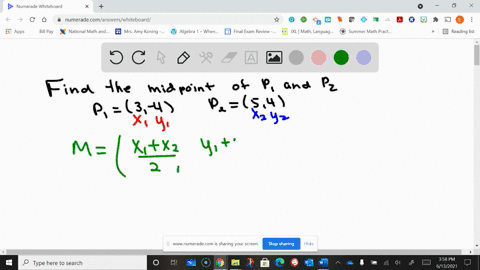 Numerade Whiteboard
numerade.com/answers/whiteboard/
Apps
Bill Pay
National Math and ...
Algebra 1 – Wheno...
Final Exam Review -...
Reading list
Find the midpoint of P₁ and P₂
P₁ = (3,-4) P₂ = (5,4)
x₁ y₁ x₂ y₂
M = ( x₁ + x₂ y₁ +
2 ,
www.numerade.com is sharing your screen. Stop sharing Hide
Type here to search
3:58 PM
6/13/2021